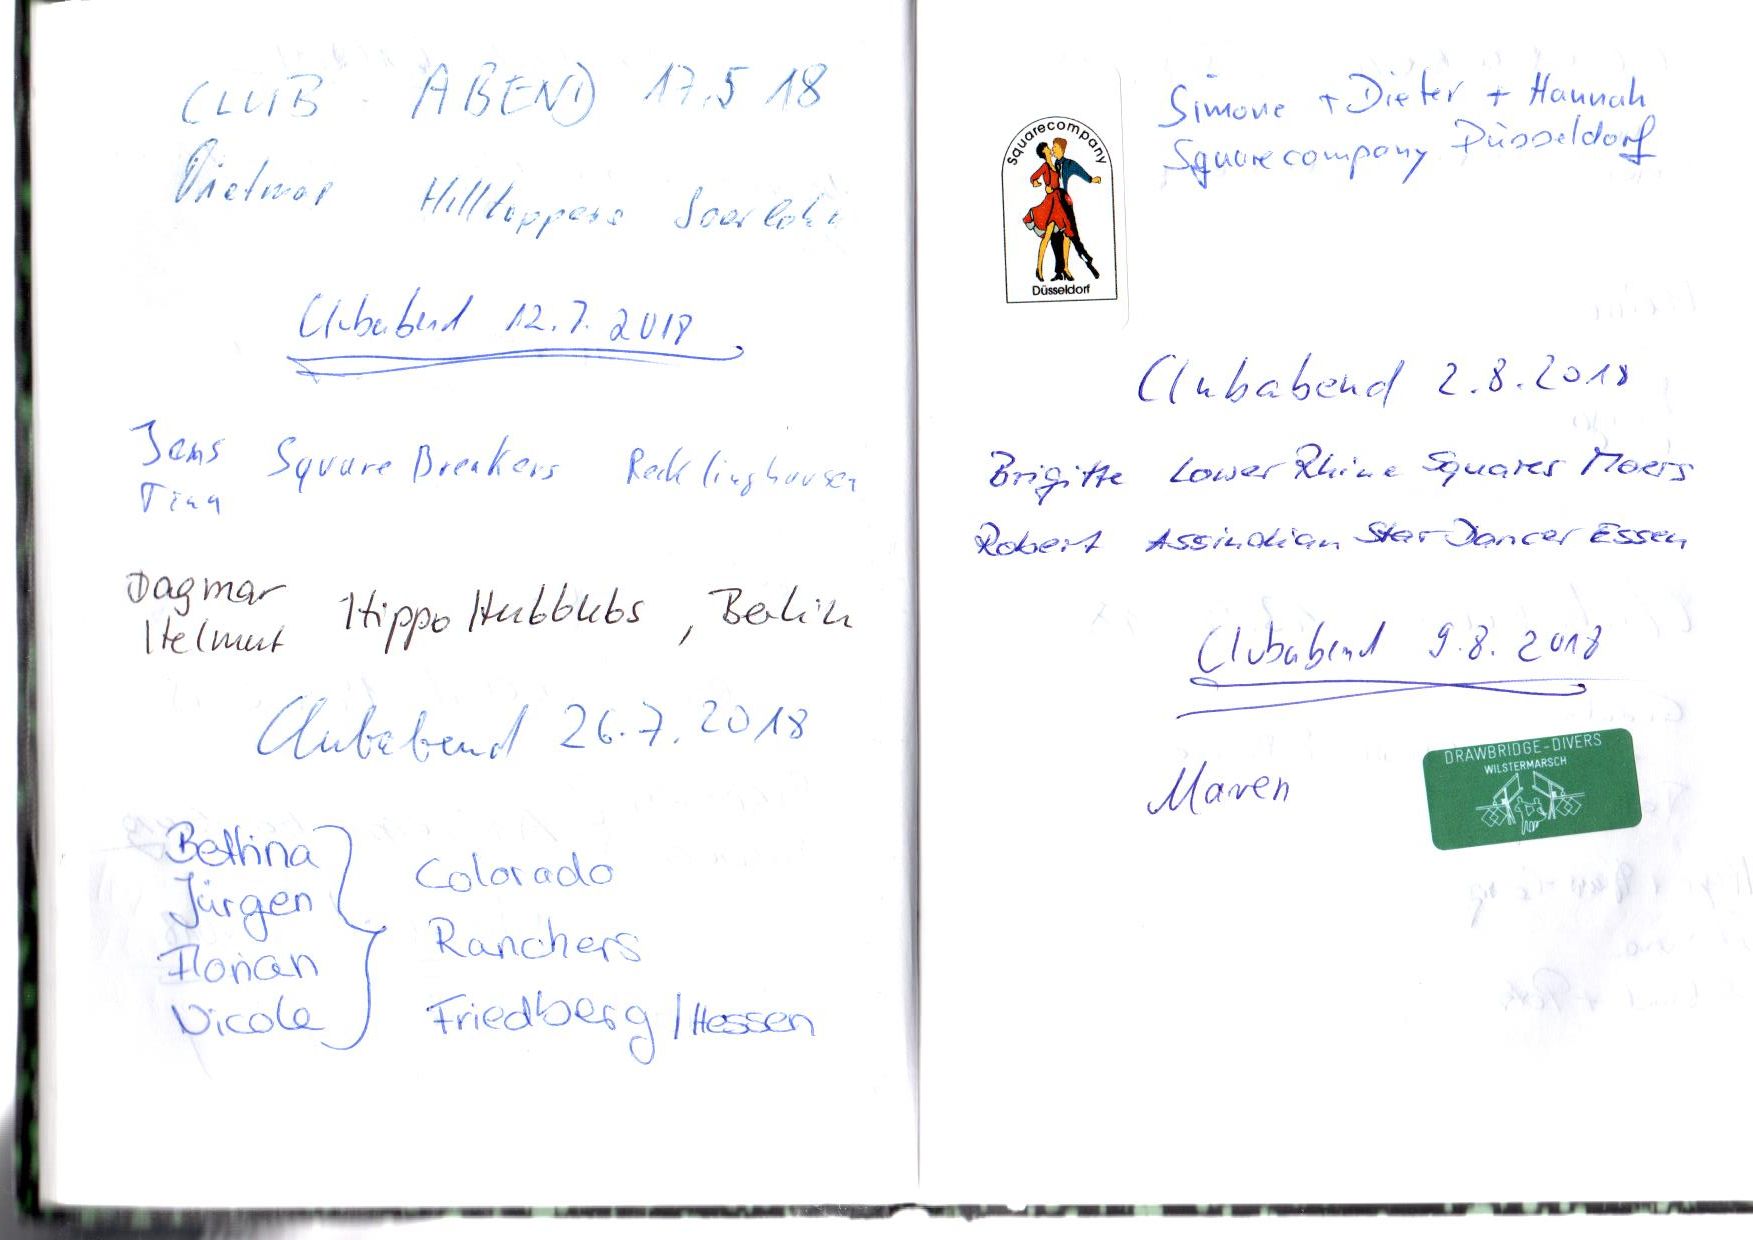 CLUB ABEND 17.5 18
Dietmar Hilltoppers
Clubabend 12.7.2018
Jens Square Breakers Recklinghausen
Tina
Dagmar
Helmut
Hippo Hubbubs, Berlin
Clubabend 26.7.2018
Bettina
Jürgen
Florian
Nicole
Colorado
Ranchers
Friedberg/Hessen
squarecompany
Düsseldorf
Simone + Dieter + Hannah
Squarecompany Düsseldorf
Clubabend 2.8.2018
Brigitte Lower Rhine Squares Moers
Robert Assindian Star Dancer Essen
Clubabend 9.8.2018
Maren
DRAWBRIDGE-DIVERS
WILSTERMARSCH